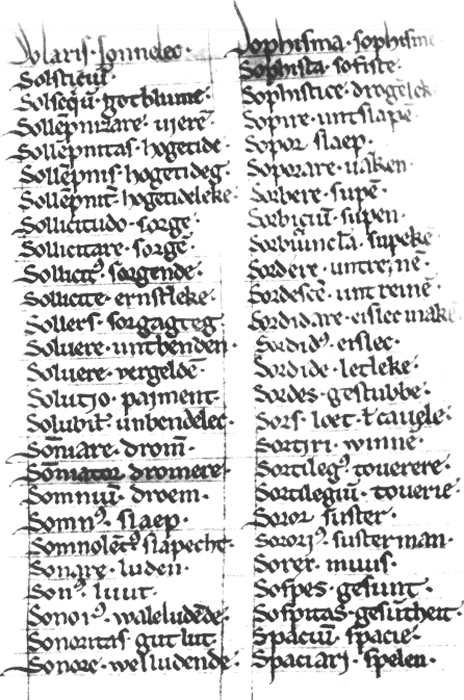 Solaris · sonnelec ·
Solsticiū ·
Solseqū · gotblume ·
Sollēpnizare · vierē ·
Sollēpnitas · hogetide ·
Sollēpnis · hogetideg ·
Sollēpnit̄ · hogetideleke ·
Sollicitudo · sorge ·
Sollicitare · sorgē ·
Sollicitꝰ · sorgende ·
Sollicite · ernstleke ·
Sollers · sorgagteg
Soluere · untbenden ·
Soluere · vergeldē ·
Solutjo · paiment ·
Solubil̄ · unbendelec ·
Sōniare · drom̄ ·
Sōniator · dromere ·
Somniū · droem ·
Somnꝰ · slaep ·
Somnolētꝰ slapecht ·
Sonare · luden ·
Sonꝰ · luut ·
Sonorꝰ · waleludēde ·
Sonoritas · gut lut ·
Sonore · wel ludende ·
Sophisma · sophisme
Sophista · sofiste ·
Sophistice · drogēlek
Sopire · untslapē ·
Sopor · slaep ·
Soporare · vaken ·
Sorbere · supē ·
Sorbiciū · supen ·
Sorbiūncl̄a · supeke ·
Sordere · untreinē ·
Sordescē · unt reinē ·
Sordidare · eislec make
Sordidꝰ · eislec ·
Sordide · letleke ·
Sordes · gestubbe ·
Sors · loet · ł cauele ·
Sortiri · winne ·
Sortilegꝰ · touerere ·
Sortilegiū · touerie ·
Soror · suster ·
Sororjꝰ · suster man ·
Sorex · muus ·
Sospes · gesunt ·
Sospitas · gesūtheit ·
Spaciū · spacie ·
Spaciarj · spelen ·